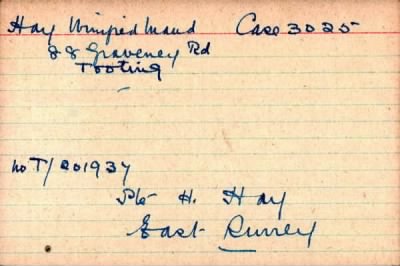 Hay Winifred Maud Case 3025
88 Graveney Rd
Tooting
No T/201937
Pte H. Hay
East Surrey